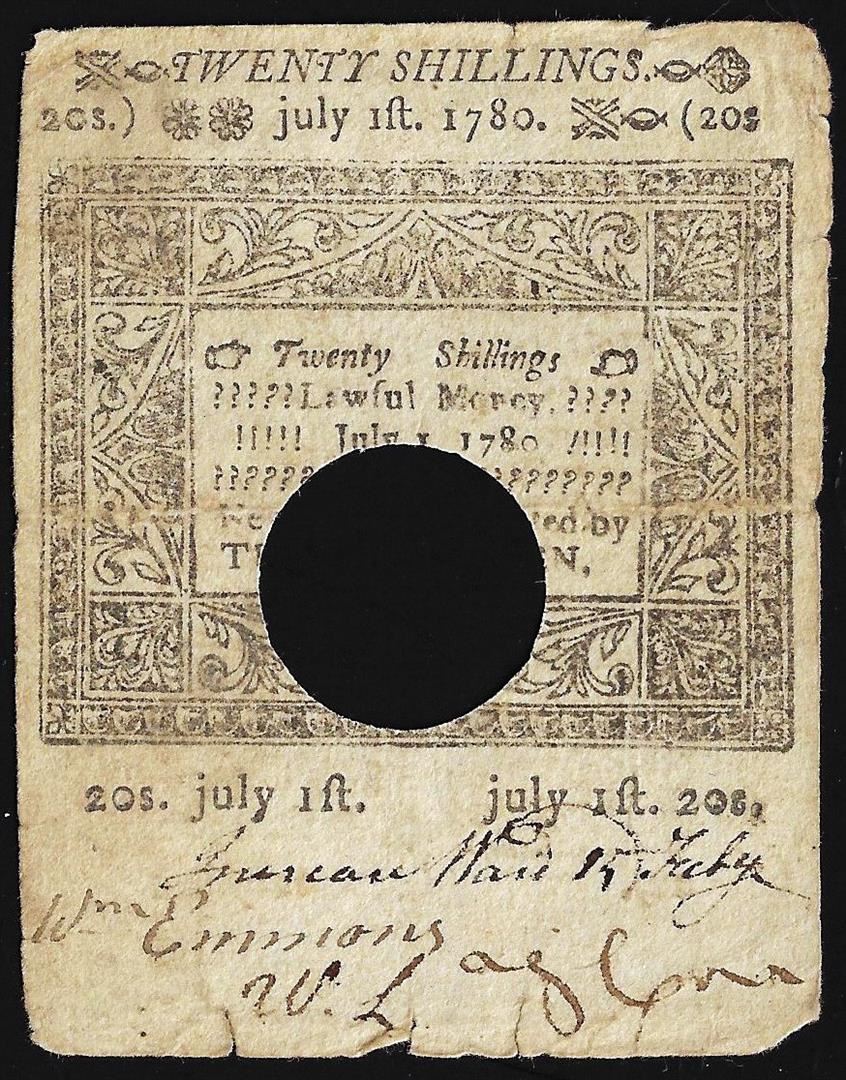 TWENTY SHILLINGS.
20s.) july 1ſt. 1780. (20s
Twenty Shillings
?????Lawful Money.????
!!!!! July 1 1780 !!!!!
?????? ?????????
ed by
N,
20s. july 1ſt. july 1ſt. 20s.
Wm
Emmons
W. L